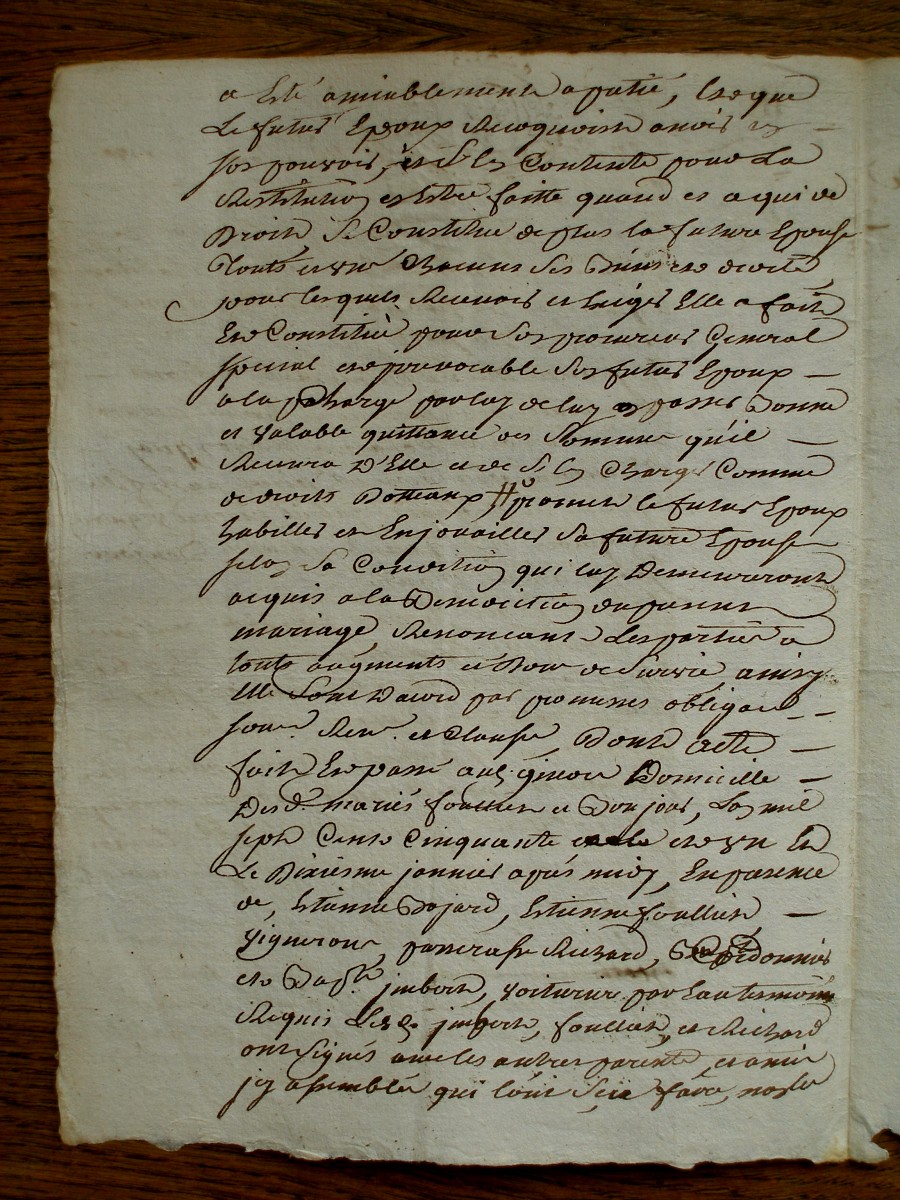 a esté amiablement apatié, ce que
Le futur Epoux Recognoist avoir en
son pouvoir, et s'en Contente pour La
Restitution en estre faitte quand et a qui de
Droit, Se Constitue de plus la future Epouse
Touts et un Chacuns Ses biens et droits
pour lesquels Recevoir et Exiger Elle a fait
Et Constitué pour Son procureur General
special et irrevocable Son futur Epoux
a la Charge par luy de passer Bonne
et valable quittance des Sommes qu'il
Recevra D'Elle et de Se les Charger Comme
de droits Dottaux, promet le futur Epoux
habiller et Enjouailler Sa future Epouse
selon Sa Condition qui luy Demeureront
acquis a la Benediction du present
mariage Renonçant Les parties a
touts augments et Bon de Survie, ainsy
Elle Sont D'acord par promesses obligaon
soum. Ren. et Clause, Dont acte
fait Et passé audt Domicille
Desd. mariés foullien et Boujard, Lan mil
sept Cents Cinquante et un Et
Le Dixiesme janvier aprés midy, En presence
de, Estienne Bojard, Estienne foullien
Vignerons, Richard, Cordonnier
et Bapte. imbert, voiturier par eau temoins
Requis Lesd. imbert, foullien, et Richard
ont Signés avec les autres parents, et amis
icy assemblés qui l'ont Sçu faire, non les